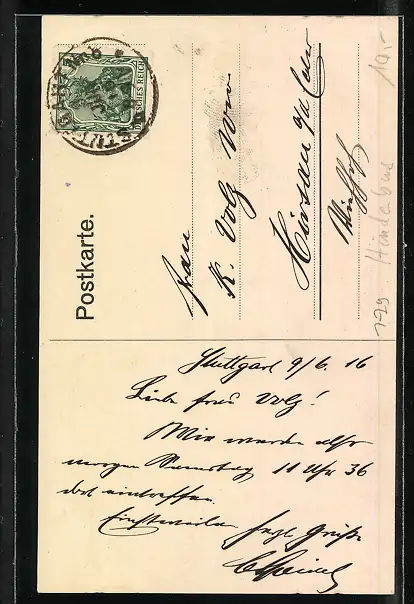 Postkarte.
DEUTSCHES REICH
STUTTGART
Frau
K. Volz Wwe
Hirsau o/A Calw
Stuttgart 9/6. 16
Liebe Frau Volz!
Wir werden also
morgen Samstag 11 Uhr 36
dort eintreffen.
Einstweilen herzl. Grüße
10.-
179 Hindebus